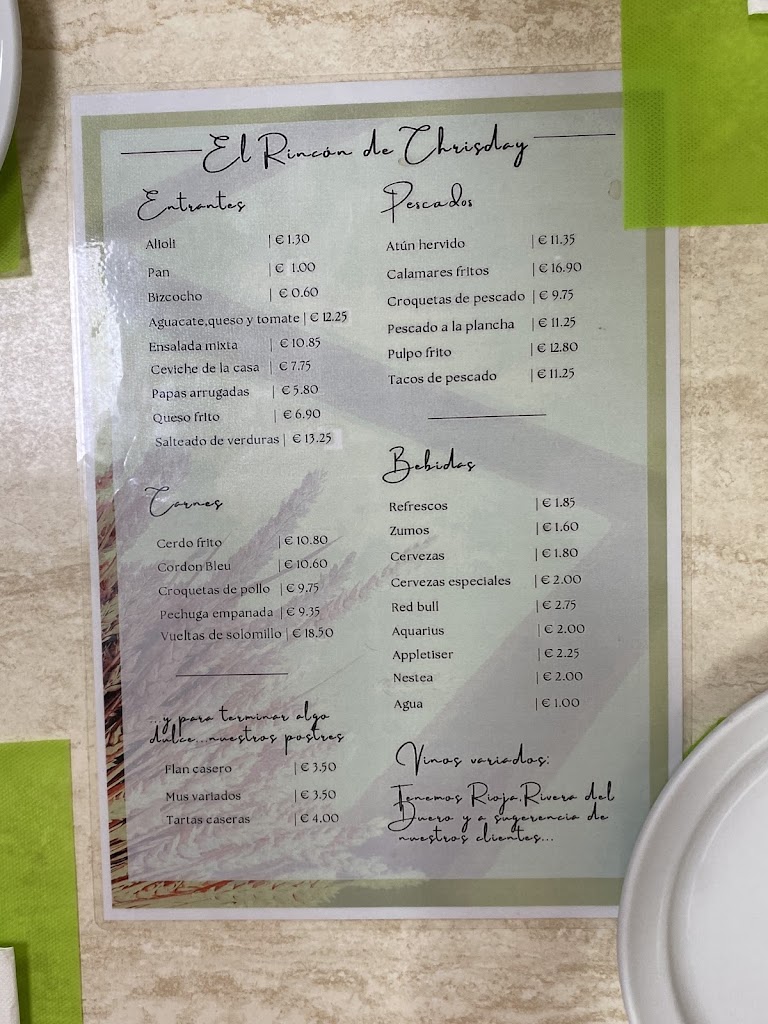 El Rincón de Chrisday
Entrantes
Alioli | € 1.30
Pan | € 1.00
Bizcocho | € 0.60
Aguacate,queso y tomate | € 12.25
Ensalada mixta | € 10.85
Ceviche de la casa | € 7.75
Papas arrugadas | € 5.80
Queso frito | € 6.90
Salteado de verduras | € 13.25
Carnes
Cerdo frito | € 10.80
Cordon Bleu | € 10.60
Croquetas de pollo | € 9.75
Pechuga empanada | € 9.35
Vueltas de solomillo | € 18.50
...y para terminar algo
dulce...nuestros postres
Flan casero | € 3.50
Mus variados | € 3.50
Tartas caseras | € 4.00
Pescados
Atún hervido | € 11.35
Calamares fritos | € 16.90
Croquetas de pescado | € 9.75
Pescado a la plancha | € 11.25
Pulpo frito | € 12.80
Tacos de pescado | € 11.25
Bebidas
Refrescos | € 1.85
Zumos | € 1.60
Cervezas | € 1.80
Cervezas especiales | € 2.00
Red bull | € 2.75
Aquarius | € 2.00
Appletiser | € 2.25
Nestea | € 2.00
Agua | € 1.00
Vinos variados:
Tenemos Rioja,Rivera del
Duero y a sugerencia de
nuestros clientes...